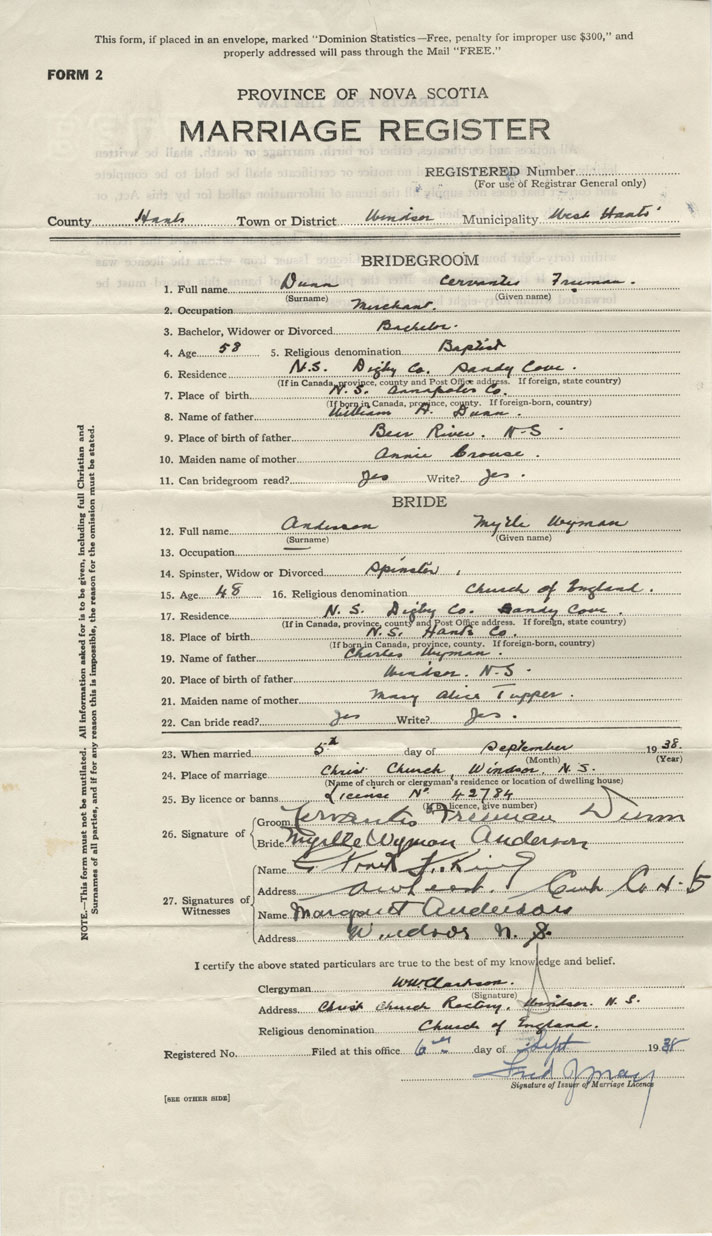 This form, if placed in an envelope, marked "Dominion Statistics—Free, penalty for improper use $300," and
properly addressed will pass through the Mail "FREE."
FORM 2
PROVINCE OF NOVA SCOTIA
MARRIAGE REGISTER
REGISTERED Number
(For use of Registrar General only)
County Hants Town or District Windsor Municipality West Hants
BRIDEGROOM
1. Full name Dunn Cervantes Freeman.
(Surname) (Given name)
2. Occupation Merchant.
3. Bachelor, Widower or Divorced Bachelor.
4. Age 58 5. Religious denomination Baptist
6. Residence N.S. Digby Co. Sandy Cove.
(If in Canada, province, county and Post Office address. If foreign, state country)
7. Place of birth N.S. Annapolis Co.
(If born in Canada, province, county. If foreign-born, country)
8. Name of father William H. Dunn.
9. Place of birth of father Bear River. N-S
10. Maiden name of mother Annie Crouse.
11. Can bridegroom read? Yes Write? Yes.
BRIDE
12. Full name Anderson Myrtle Wyman
(Surname) (Given name)
13. Occupation
14. Spinster, Widow or Divorced Spinster.
15. Age 48 16. Religious denomination Church of England.
17. Residence N.S. Digby Co. Sandy Cove.
(If in Canada, province, county and Post Office address. If foreign, state country)
18. Place of birth N.S. Hants Co.
(If born in Canada, province, county. If foreign-born, country)
19. Name of father Charles Wyman.
20. Place of birth of father Windsor. N-S.
21. Maiden name of mother Mary Alice Tupper.
22. Can bride read? Yes Write? Yes.
23. When married 5th day of September 1938.
(Month) (Year)
24. Place of marriage Christ Church, Windsor, N.S.
(Name of church or clergyman's residence or location of dwelling house)
25. By licence or banns License No. 42784
(If by licence, give number)
26. Signature of
Groom Cervantes Freeman Dunn
Bride Myrtle Wyman Anderson
27. Signatures of Witnesses
Name King
Address Amherst. Cum. Co. N-S
Name Margaret Anderson
Address Windsor N.S.
I certify the above stated particulars are true to the best of my knowledge and belief.
Clergyman WW Clarkson.
(Signature)
Address Christ Church Rectory, Windsor. N.S.
Religious denomination Church of England.
Registered No. Filed at this office 6th day of Sept 1938
Fred J May
Signature of Issuer of Marriage Licence
[SEE OTHER SIDE]
NOTE.—This form must not be mutilated. All information asked for is to be given, including full Christian and
Surnames of all parties, and if for any reason this is impossible, the reason for the omission must be stated.